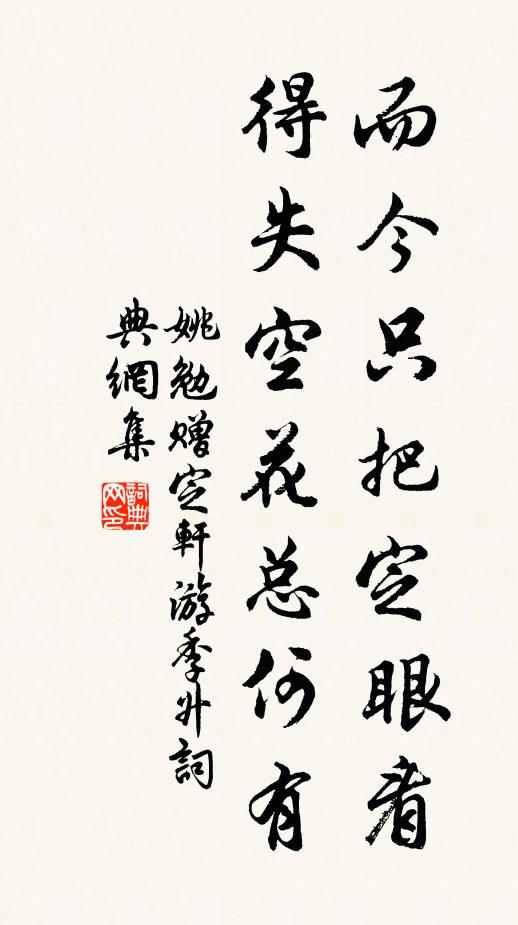 而今只把定眼看
得失空花总何有
姚勉赠定軒游季升詞
典網集
詞典網印